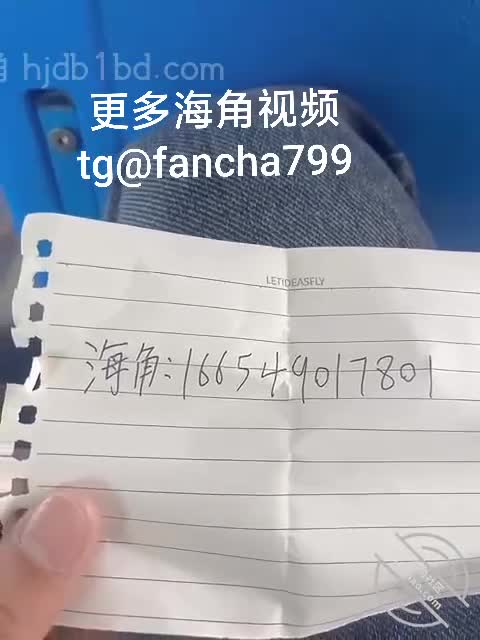 角 hjdb1bd.com
更多海角视频
tg@fancha799
LETIDEASFLY
海角:166549017801